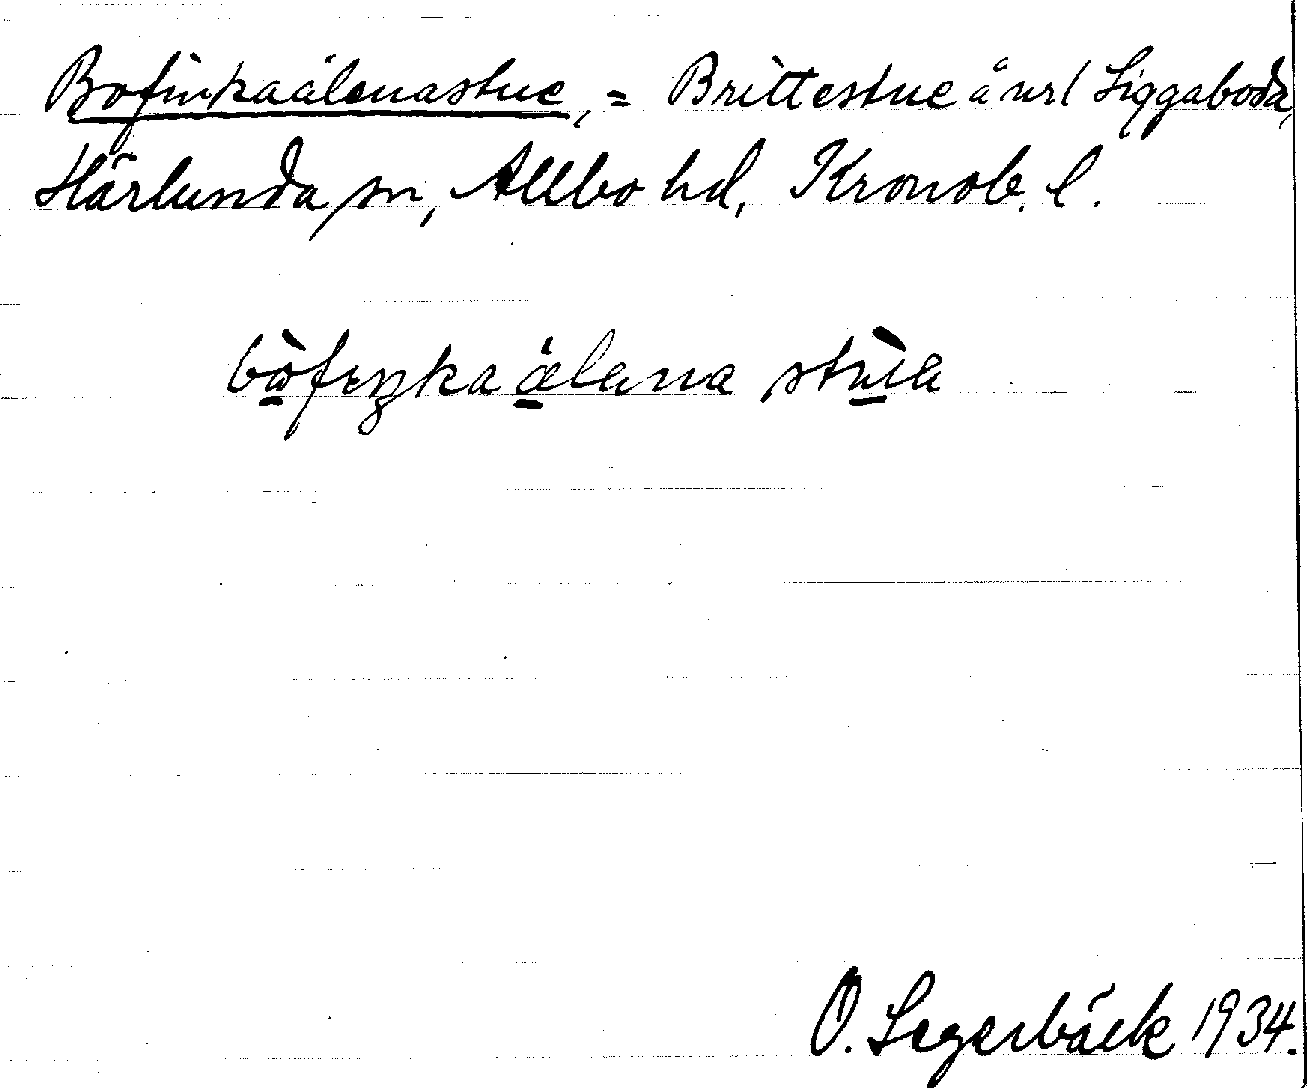 Bofinkaälenastue, = Brittestue å url Siggaboda,
Härlunda sn, Allbo hd, Kronob. l.
bòfıŋkaälena stùa
O. Segerbäck 1934.